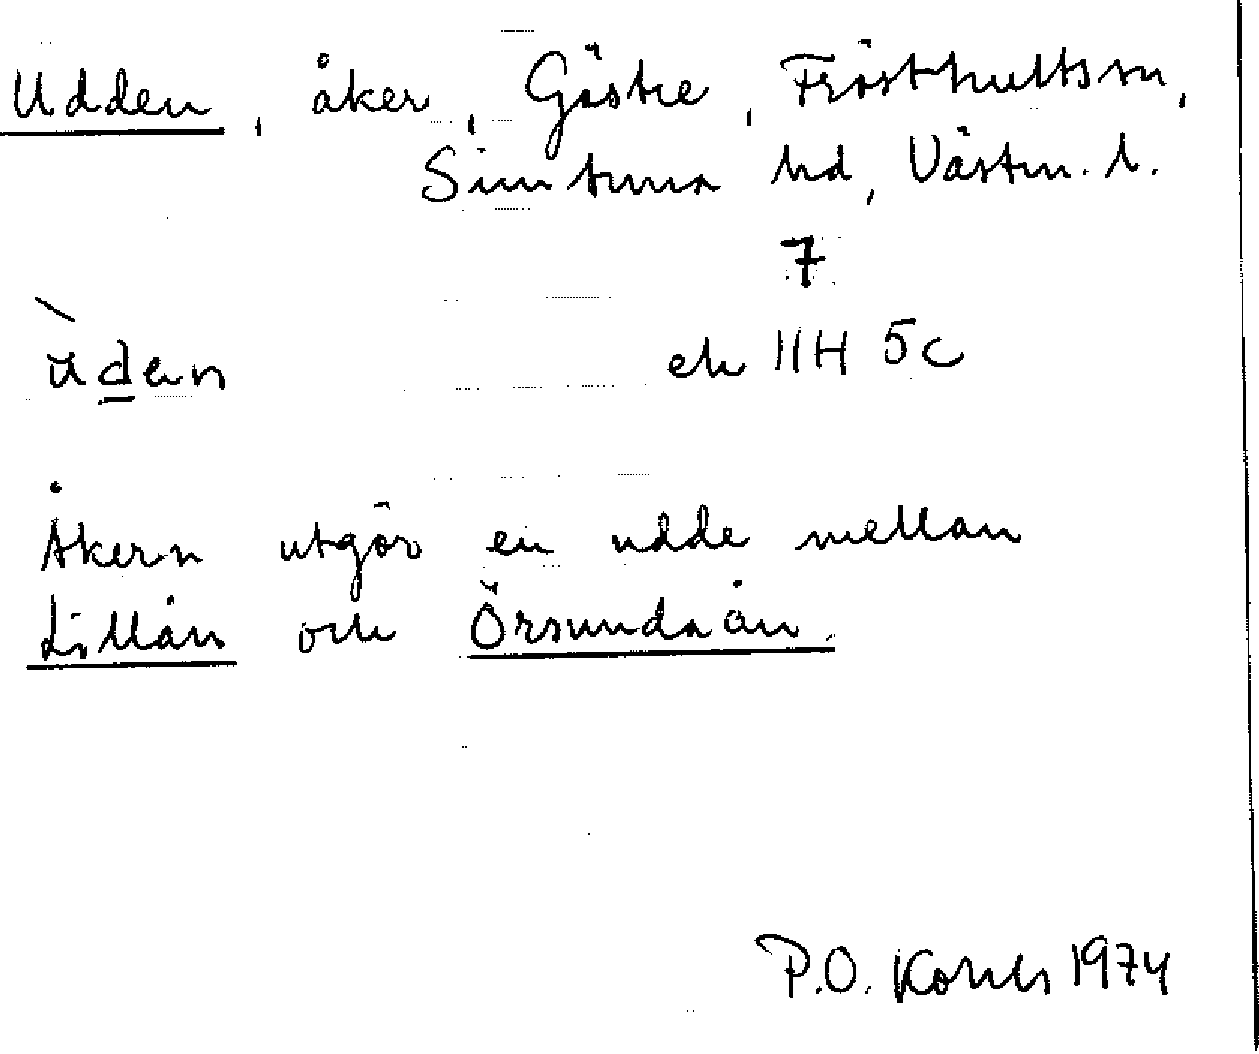 Udden, åker, Göstre, Frösthultssn,
Simtuna hd, Västm. l.
7
ùden ek 11H 5c
Åkern utgör en udde mellan
Lillån och Örsundaån.
P.O. 1974